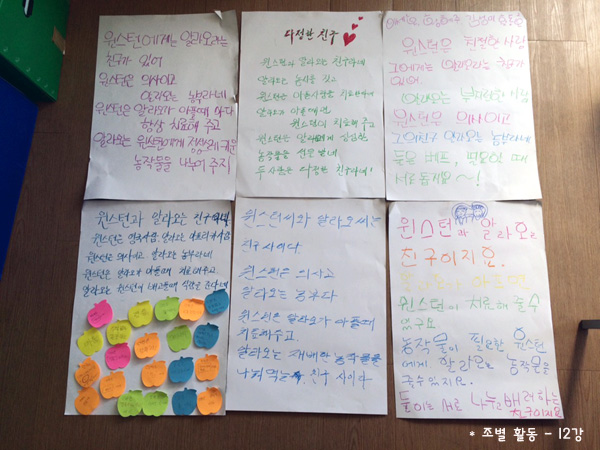 윈스턴에게는 알라오라는
친구가 있어
윈스턴은 의사이고
알라오는 농부라네
윈스턴은 알라오가 아플때 마다
항상 치료해 주고
알라오는 윈스턴에게 정성스레 키운
농작물을 나누어 주지
다정한 친구
윈스턴과 알라오는 친구라네
알라오는 농사를 짓고
윈스턴은 아픈사람을 치료한다네
알라오가 아플때면
윈스턴이 치료해 주고
윈스턴은 알라에게 싱싱한
농작물을 선물 받네
두 사람은 다정한 친구라네!
윈스턴은 친절한 사람
그에게는 알라오라는 친구가
있어
알라오는 부지런한 사람
윈스턴은 의사이고
그의친구 알라오는 농부라네
둘은 베프, 필요할 때
서로 돕지요~!
윈스턴과 알라오는 친구라네
윈스턴은 의사이고 알라오는 농부라네
윈스턴은 알라오가 아플때 치료해주고
알라오는 윈스턴이 배고플때 식량을 준다네
윈스턴씨와 알라오씨는
친구 사이다.
윈스턴은 의사고
알라오는 농부다
윈스턴은 알라오가 아플때
치료해주고.
알라오는 재배한 농작물을
나눠 먹는 친구 사이다
윈스턴과 알라오는
친구이지요.
알라오가 아프면
윈스턴이 치료해 줄수
있구요
농작물이 필요한 윈스턴
에게 알라오는 농작물을
줄수있지요.
둘이는 서로 나누고 배려하는
친구이지요
* 조별 활동 - 12강